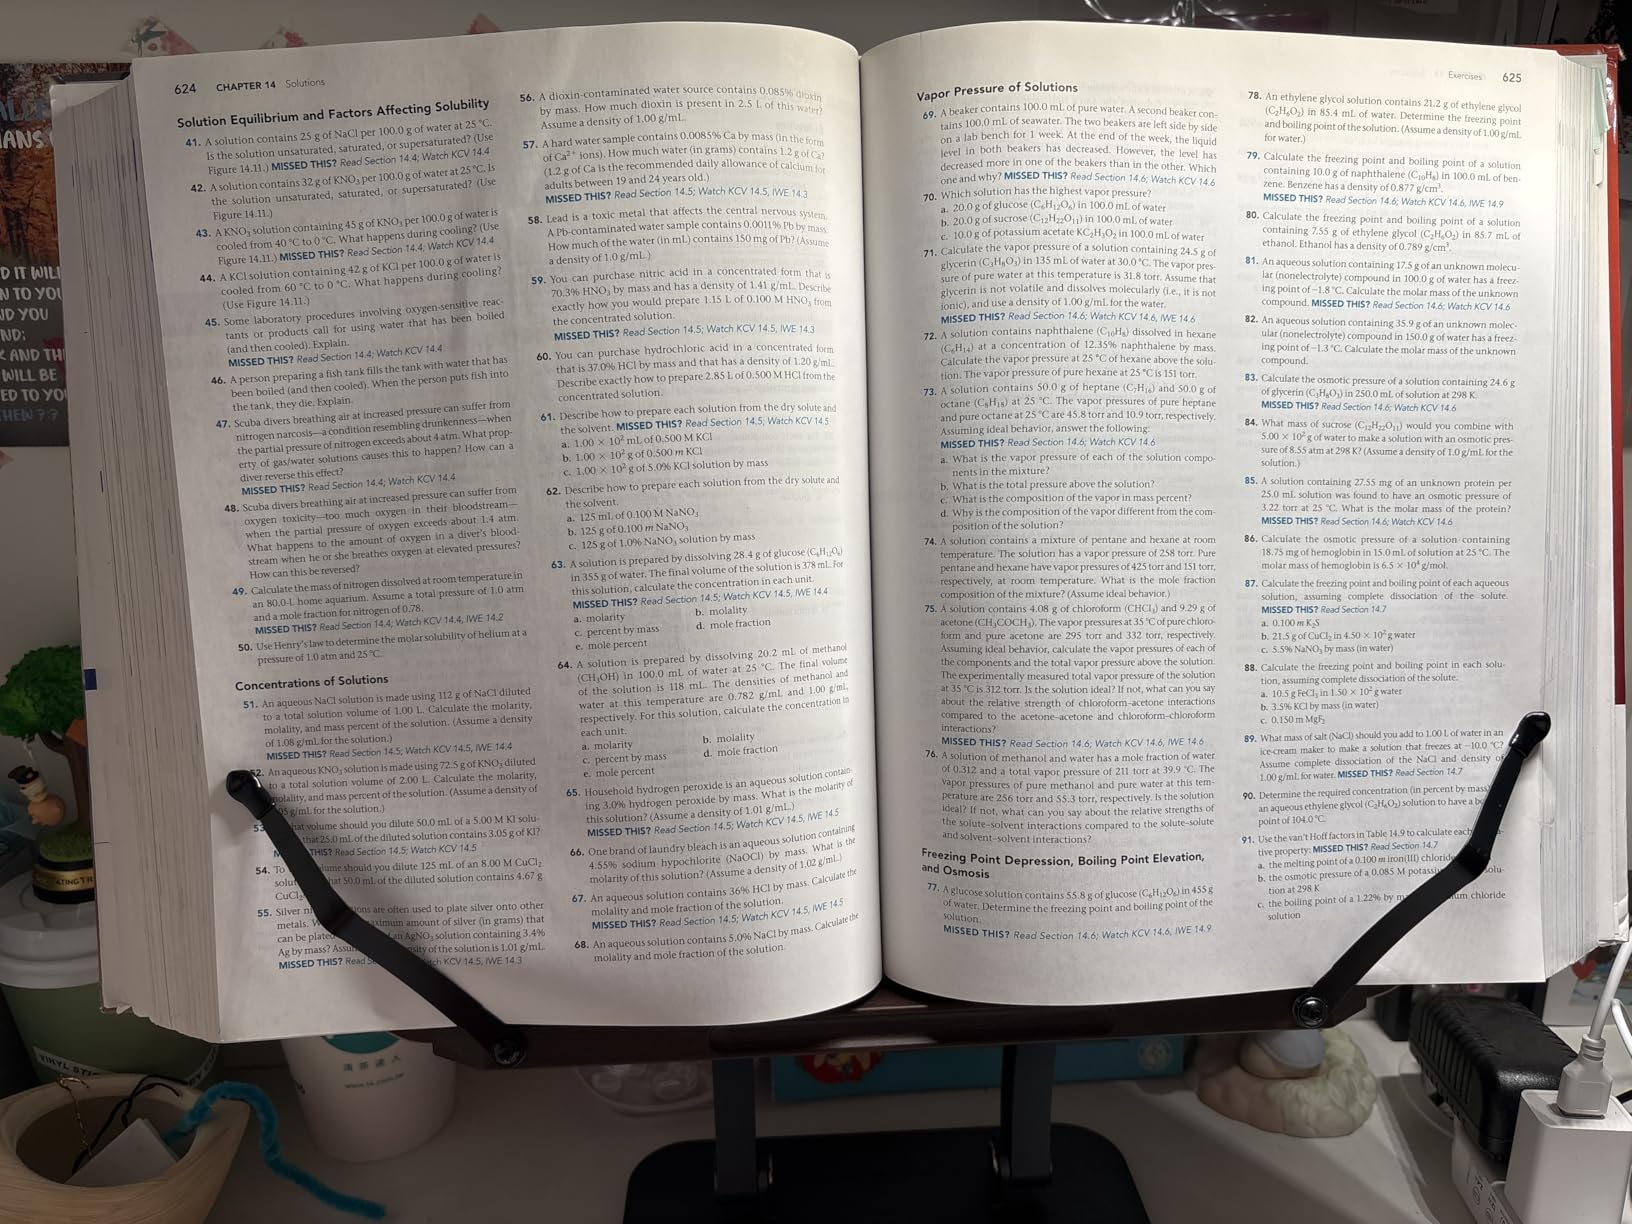 624 CHAPTER 14 Solutions
Solution Equilibrium and Factors Affecting Solubility
41. A solution contains 25 g of NaCl per 100.0 g of water at 25 °C.
Is the solution unsaturated, saturated, or supersaturated? (Use
Figure 14.11.) MISSED THIS? Read Section 14.4; Watch KCV 14.4
42. A solution contains 32 g of KNO₃ per 100.0 g of water at 25 °C. Is
the solution unsaturated, saturated, or supersaturated? (Use
Figure 14.11.)
43. A KNO₃ solution containing 45 g of KNO₃ per 100.0 g of water is
cooled from 40 °C to 0 °C. What happens during cooling? (Use
Figure 14.11.) MISSED THIS? Read Section 14.4; Watch KCV 14.4
44. A KCl solution containing 42 g of KCl per 100.0 g of water is
cooled from 60 °C to 0 °C. What happens during cooling?
(Use Figure 14.11.)
45. Some laboratory procedures involving oxygen-sensitive reac-
tants or products call for using water that has been boiled
(and then cooled). Explain.
MISSED THIS? Read Section 14.4; Watch KCV 14.4
46. A person preparing a fish tank fills the tank with water that has
been boiled (and then cooled). When the person puts fish into
the tank, they die. Explain.
47. Scuba divers breathing air at increased pressure can suffer from
nitrogen narcosis—a condition resembling drunkenness—when
the partial pressure of nitrogen exceeds about 4 atm. What prop-
erty of gas/water solutions causes this to happen? How can a
diver reverse this effect?
MISSED THIS? Read Section 14.4; Watch KCV 14.4
48. Scuba divers breathing air at increased pressure can suffer from
oxygen toxicity—too much oxygen in their bloodstream—
when the partial pressure of oxygen exceeds about 1.4 atm.
What happens to the amount of oxygen in a diver's blood-
stream when he or she breathes oxygen at elevated pressures?
How can this be reversed?
49. Calculate the mass of nitrogen dissolved at room temperature in
an 80.0-L home aquarium. Assume a total pressure of 1.0 atm
and a mole fraction for nitrogen of 0.78.
MISSED THIS? Read Section 14.4; Watch KCV 14.4, IWE 14.2
50. Use Henry's law to determine the molar solubility of helium at a
pressure of 1.0 atm and 25 °C.
Concentrations of Solutions
51. An aqueous NaCl solution is made using 112 g of NaCl diluted
to a total solution volume of 1.00 L. Calculate the molarity,
molality, and mass percent of the solution. (Assume a density
of 1.08 g/mL for the solution.)
MISSED THIS? Read Section 14.5; Watch KCV 14.5, IWE 14.4
52. An aqueous KNO₃ solution is made using 72.5 g of KNO₃ diluted
to a total solution volume of 2.00 L. Calculate the molarity,
molality, and mass percent of the solution. (Assume a density of
05 g/mL for the solution.)
53. hat volume should you dilute 50.0 mL of a 5.00 M KI solu-
that 25.0 mL of the diluted solution contains 3.05 g of KI?
THIS? Read Section 14.5; Watch KCV 14.5
54. To lume should you dilute 125 mL of an 8.00 M CuCl₂
solut hat 50.0 mL of the diluted solution contains 4.67 g
CuCl₂
55. Silver ni ons are often used to plate silver onto other
metals. W aximum amount of silver (in grams) that
can be plate an AgNO₃ solution containing 3.4%
Ag by mass? Assu sity of the solution is 1.01 g/mL.
MISSED THIS? Read Se tch KCV 14.5, IWE 14.3
56. A dioxin-contaminated water source contains 0.085% dioxin
by mass. How much dioxin is present in 2.5 L of this water?
Assume a density of 1.00 g/mL.
57. A hard water sample contains 0.0085% Ca by mass (in the form
of Ca²⁺ ions). How much water (in grams) contains 1.2 g of Ca?
(1.2 g of Ca is the recommended daily allowance of calcium for
adults between 19 and 24 years old.)
MISSED THIS? Read Section 14.5; Watch KCV 14.5, IWE 14.3
58. Lead is a toxic metal that affects the central nervous system.
A Pb-contaminated water sample contains 0.0011% Pb by mass.
How much of the water (in mL) contains 150 mg of Pb? (Assume
a density of 1.0 g/mL.)
59. You can purchase nitric acid in a concentrated form that is
70.3% HNO₃ by mass and has a density of 1.41 g/mL. Describe
exactly how you would prepare 1.15 L of 0.100 M HNO₃ from
the concentrated solution.
MISSED THIS? Read Section 14.5; Watch KCV 14.5, IWE 14.3
60. You can purchase hydrochloric acid in a concentrated form
that is 37.0% HCl by mass and that has a density of 1.20 g/mL.
Describe exactly how to prepare 2.85 L of 0.500 M HCl from the
concentrated solution.
61. Describe how to prepare each solution from the dry solute and
the solvent. MISSED THIS? Read Section 14.5; Watch KCV 14.5
a. 1.00 × 10² mL of 0.500 M KCl
b. 1.00 × 10² g of 0.500 m KCl
c. 1.00 × 10² g of 5.0% KCl solution by mass
62. Describe how to prepare each solution from the dry solute and
the solvent.
a. 125 mL of 0.100 M NaNO₃
b. 125 g of 0.100 m NaNO₃
c. 125 g of 1.0% NaNO₃ solution by mass
63. A solution is prepared by dissolving 28.4 g of glucose (C₆H₁₂O₆)
in 355 g of water. The final volume of the solution is 378 mL. For
this solution, calculate the concentration in each unit.
MISSED THIS? Read Section 14.5; Watch KCV 14.5, IWE 14.4
a. molarity b. molality
c. percent by mass d. mole fraction
e. mole percent
64. A solution is prepared by dissolving 20.2 mL of methanol
(CH₃OH) in 100.0 mL of water at 25 °C. The final volume
of the solution is 118 mL. The densities of methanol and
water at this temperature are 0.782 g/mL and 1.00 g/mL,
respectively. For this solution, calculate the concentration in
each unit.
a. molarity b. molality
c. percent by mass d. mole fraction
e. mole percent
65. Household hydrogen peroxide is an aqueous solution contain-
ing 3.0% hydrogen peroxide by mass. What is the molarity of
this solution? (Assume a density of 1.01 g/mL.)
MISSED THIS? Read Section 14.5; Watch KCV 14.5, IWE 14.5
66. One brand of laundry bleach is an aqueous solution containing
4.55% sodium hypochlorite (NaOCl) by mass. What is the
molarity of this solution? (Assume a density of 1.02 g/mL.)
67. An aqueous solution contains 36% HCl by mass. Calculate the
molality and mole fraction of the solution.
MISSED THIS? Read Section 14.5; Watch KCV 14.5, IWE 14.5
68. An aqueous solution contains 5.0% NaCl by mass. Calculate the
molality and mole fraction of the solution.
Exercises 625
Vapor Pressure of Solutions
69. A beaker contains 100.0 mL of pure water. A second beaker con-
tains 100.0 mL of seawater. The two beakers are left side by side
on a lab bench for 1 week. At the end of the week, the liquid
level in both beakers has decreased. However, the level has
decreased more in one of the beakers than in the other. Which
one and why? MISSED THIS? Read Section 14.6; Watch KCV 14.6
70. Which solution has the highest vapor pressure?
a. 20.0 g of glucose (C₆H₁₂O₆) in 100.0 mL of water
b. 20.0 g of sucrose (C₁₂H₂₂O₁₁) in 100.0 mL of water
c. 10.0 g of potassium acetate KC₂H₃O₂ in 100.0 mL of water
71. Calculate the vapor pressure of a solution containing 24.5 g of
glycerin (C₃H₈O₃) in 135 mL of water at 30.0 °C. The vapor pres-
sure of pure water at this temperature is 31.8 torr. Assume that
glycerin is not volatile and dissolves molecularly (i.e., it is not
ionic), and use a density of 1.00 g/mL for the water.
MISSED THIS? Read Section 14.6; Watch KCV 14.6, IWE 14.6
72. A solution contains naphthalene (C₁₀H₈) dissolved in hexane
(C₆H₁₄) at a concentration of 12.35% naphthalene by mass.
Calculate the vapor pressure at 25 °C of hexane above the solu-
tion. The vapor pressure of pure hexane at 25 °C is 151 torr.
73. A solution contains 50.0 g of heptane (C₇H₁₆) and 50.0 g of
octane (C₈H₁₈) at 25 °C. The vapor pressures of pure heptane
and pure octane at 25 °C are 45.8 torr and 10.9 torr, respectively.
Assuming ideal behavior, answer the following:
MISSED THIS? Read Section 14.6; Watch KCV 14.6
a. What is the vapor pressure of each of the solution compo-
nents in the mixture?
b. What is the total pressure above the solution?
c. What is the composition of the vapor in mass percent?
d. Why is the composition of the vapor different from the com-
position of the solution?
74. A solution contains a mixture of pentane and hexane at room
temperature. The solution has a vapor pressure of 258 torr. Pure
pentane and hexane have vapor pressures of 425 torr and 151 torr,
respectively, at room temperature. What is the mole fraction
composition of the mixture? (Assume ideal behavior.)
75. A solution contains 4.08 g of chloroform (CHCl₃) and 9.29 g of
acetone (CH₃COCH₃). The vapor pressures at 35 °C of pure chloro-
form and pure acetone are 295 torr and 332 torr, respectively.
Assuming ideal behavior, calculate the vapor pressures of each of
the components and the total vapor pressure above the solution.
The experimentally measured total vapor pressure of the solution
at 35 °C is 312 torr. Is the solution ideal? If not, what can you say
about the relative strength of chloroform–acetone interactions
compared to the acetone–acetone and chloroform–chloroform
interactions?
MISSED THIS? Read Section 14.6; Watch KCV 14.6, IWE 14.6
76. A solution of methanol and water has a mole fraction of water
of 0.312 and a total vapor pressure of 211 torr at 39.9 °C. The
vapor pressures of pure methanol and pure water at this tem-
perature are 256 torr and 55.3 torr, respectively. Is the solution
ideal? If not, what can you say about the relative strengths of
the solute–solvent interactions compared to the solute–solute
and solvent–solvent interactions?
Freezing Point Depression, Boiling Point Elevation,
and Osmosis
77. A glucose solution contains 55.8 g of glucose (C₆H₁₂O₆) in 455 g
of water. Determine the freezing point and boiling point of the
solution.
MISSED THIS? Read Section 14.6; Watch KCV 14.6, IWE 14.9
78. An ethylene glycol solution contains 21.2 g of ethylene glycol
(C₂H₆O₂) in 85.4 mL of water. Determine the freezing point
and boiling point of the solution. (Assume a density of 1.00 g/mL
for water.)
79. Calculate the freezing point and boiling point of a solution
containing 10.0 g of naphthalene (C₁₀H₈) in 100.0 mL of ben-
zene. Benzene has a density of 0.877 g/cm³.
MISSED THIS? Read Section 14.6; Watch KCV 14.6, IWE 14.9
80. Calculate the freezing point and boiling point of a solution
containing 7.55 g of ethylene glycol (C₂H₆O₂) in 85.7 mL of
ethanol. Ethanol has a density of 0.789 g/cm³.
81. An aqueous solution containing 17.5 g of an unknown molecu-
lar (nonelectrolyte) compound in 100.0 g of water has a freez-
ing point of −1.8 °C. Calculate the molar mass of the unknown
compound. MISSED THIS? Read Section 14.6; Watch KCV 14.6
82. An aqueous solution containing 35.9 g of an unknown molec-
ular (nonelectrolyte) compound in 150.0 g of water has a freez-
ing point of −1.3 °C. Calculate the molar mass of the unknown
compound.
83. Calculate the osmotic pressure of a solution containing 24.6 g
of glycerin (C₃H₈O₃) in 250.0 mL of solution at 298 K.
MISSED THIS? Read Section 14.6; Watch KCV 14.6
84. What mass of sucrose (C₁₂H₂₂O₁₁) would you combine with
5.00 × 10² g of water to make a solution with an osmotic pres-
sure of 8.55 atm at 298 K? (Assume a density of 1.0 g/mL for the
solution.)
85. A solution containing 27.55 mg of an unknown protein per
25.0 mL solution was found to have an osmotic pressure of
3.22 torr at 25 °C. What is the molar mass of the protein?
MISSED THIS? Read Section 14.6; Watch KCV 14.6
86. Calculate the osmotic pressure of a solution containing
18.75 mg of hemoglobin in 15.0 mL of solution at 25 °C. The
molar mass of hemoglobin is 6.5 × 10⁴ g/mol.
87. Calculate the freezing point and boiling point of each aqueous
solution, assuming complete dissociation of the solute.
MISSED THIS? Read Section 14.7
a. 0.100 m K₂S
b. 21.5 g of CuCl₂ in 4.50 × 10² g water
c. 5.5% NaNO₃ by mass (in water)
88. Calculate the freezing point and boiling point in each solu-
tion, assuming complete dissociation of the solute.
a. 10.5 g FeCl₃ in 1.50 × 10² g water
b. 3.5% KCl by mass (in water)
c. 0.150 m MgF₂
89. What mass of salt (NaCl) should you add to 1.00 L of water in an
ice-cream maker to make a solution that freezes at −10.0 °C?
Assume complete dissociation of the NaCl and density of
1.00 g/mL for water. MISSED THIS? Read Section 14.7
90. Determine the required concentration (in percent by mass)
an aqueous ethylene glycol (C₂H₆O₂) solution to have a bo
point of 104.0 °C.
91. Use the van't Hoff factors in Table 14.9 to calculate each
tive property: MISSED THIS? Read Section 14.7
a. the melting point of a 0.100 m iron(III) chloride
b. the osmotic pressure of a 0.085 M potassi solu-
tion at 298 K
c. the boiling point of a 1.22% by m um chloride
solution
D IT WILL
N TO YOU
ND YOU
ND:
AND TH
WILL BE
ED TO YOU
THEM ??
VINYL STI
ATING TR